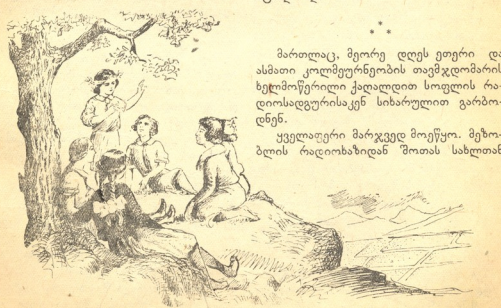 მართლაც, მეორე დღეს ეთერი და
ასმათი კოლმეურნეობის თავმჯდომარის
ხელმოწერილი ქაღალდით სოფლის რა-
დიოსადგურისაკენ სიხარულით გარბო-
დნენ.
ყველაფერი მარჯვედ მოეწყო. მეზო-
ბლის რადიოხაზიდან შოთას სახლთან